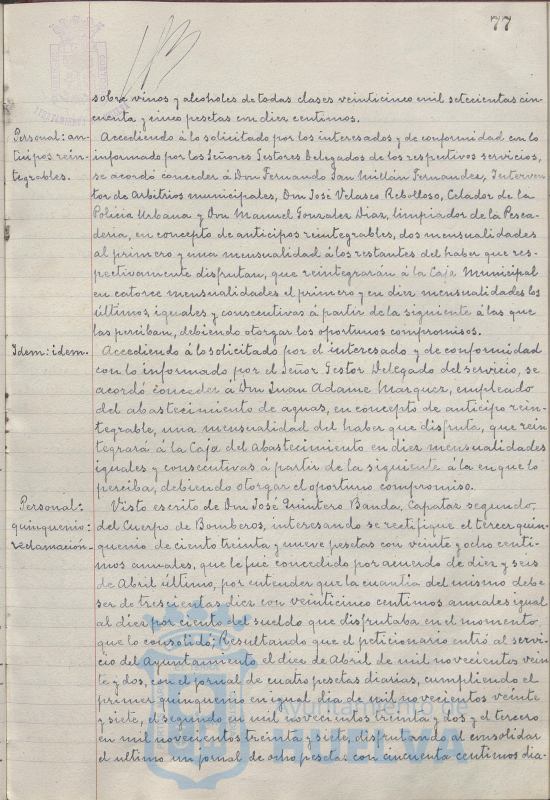 77
sobre vinos y alcoholes de todas clases veinticinco mil setecientas cin-
cuenta y cinco pesetas con diez centimos.
Personal: an-
ticipos rein-
tegrables.
Accediendo á lo solicitado por los interesados y de conformidad con lo
informado por los Señores Gestores Delegados de los respectivos servicios,
se acordó conceder á Don Fernando San Millán Fernandez, Interven-
tor de Arbitrios municipales, Don José Velasco Rebolloso, Celador de la
Policia Urbana y Don Manuel Gonzalez Diaz, limpiador de la Pesca-
deria, en concepto de anticipos reintegrables, dos mensualidades
al primero y una mensualidad á los restantes del haber que res-
pectivamente disfrutan, que reintegrarán á la Caja Municipal
en catorce mensualidades el primero y en diez mensualidades los
últimos, iguales y consecutivas á partir de la siguiente á las que
las perciban, debiendo otorgar los oportunos compromisos.
Idem: idem.
Accediendo á lo solicitado por el interesado y de conformidad
con lo informado por el Señor Gestor Delegado del servicio, se
acordó conceder á Don Juan Adame Marquez, empleado
del abastecimiento de aguas, en concepto de anticipo rein-
tegrable, una mensualidad del haber que disfruta, que rein-
tegrará á la Caja del Abastecimiento en diez mensualidades
iguales y consecutivas á partir de la siguiente á la en que lo
perciba, debiendo otorgar el oportuno compromiso.
Personal:
quinquenio:
reclamación.
Visto escrito de Don José Quintero Banda, Capataz segundo,
del Cuerpo de Bomberos, interesando se rectifique el tercer quin-
quenio de ciento treinta y nueve pesetas con veinte y ocho centi-
mos anuales, que le fué concedido por acuerdo de diez y seis
de Abril último, por entender que la cuantia del mismo debe
ser de trescientas diez con veinticinco centimos anuales igual
al diez por ciento del sueldo que disfrutaba en el momento
que lo consolidó; Resultando que el peticionario entró al servi-
cio del Ayuntamiento el doce de Abril de mil novecientos vein-
te y dos, con el jornal de cuatro pesetas diarias, cumpliendo el
primer quinquenio en igual dia de mil novecientos veinte
y siete, el segundo en mil novecientos treinta y dos y el tercero
en mil novecientos treinta y siete, disfrutando al consolidar
el ultimo un jornal de ocho pesetas con cincuenta centimos dia-
Ayuntamiento de
HUELVA